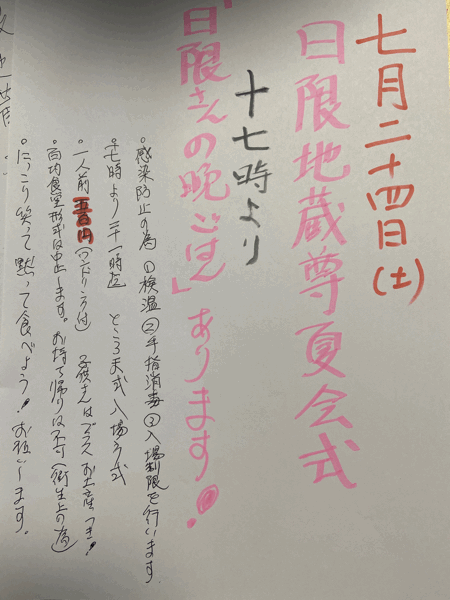 七月二十四日(土)
日限地蔵尊夏会式
十七時より
「日限さんの晩ごはん」あります!
・感染防止の為 ①検温②手指消毒③入場制限を行います
・十七時より二十一時迄 ところ天式入場方式
・一人前 五百円(ワンドリンク付) 子供さんはプラスお土産つき!
・百功食堂形式は中止します。お持ち帰りは不可(衛生上の為)
・にっこり笑って黙って食べよう!お願いします。